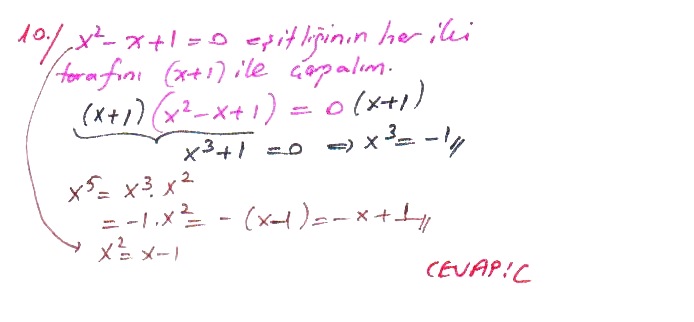 10./ x² - x + 1 = 0 eşitliğinin her iki
tarafını (x+1) ile çarpalım.
(x+1) (x² - x + 1) = 0 (x+1)
x³+1 = 0 ⇒ x³ = -1//
x⁵ = x³. x²
= -1. x² = - (x-1) = -x + 1//
x² = x - 1
CEVAP: C